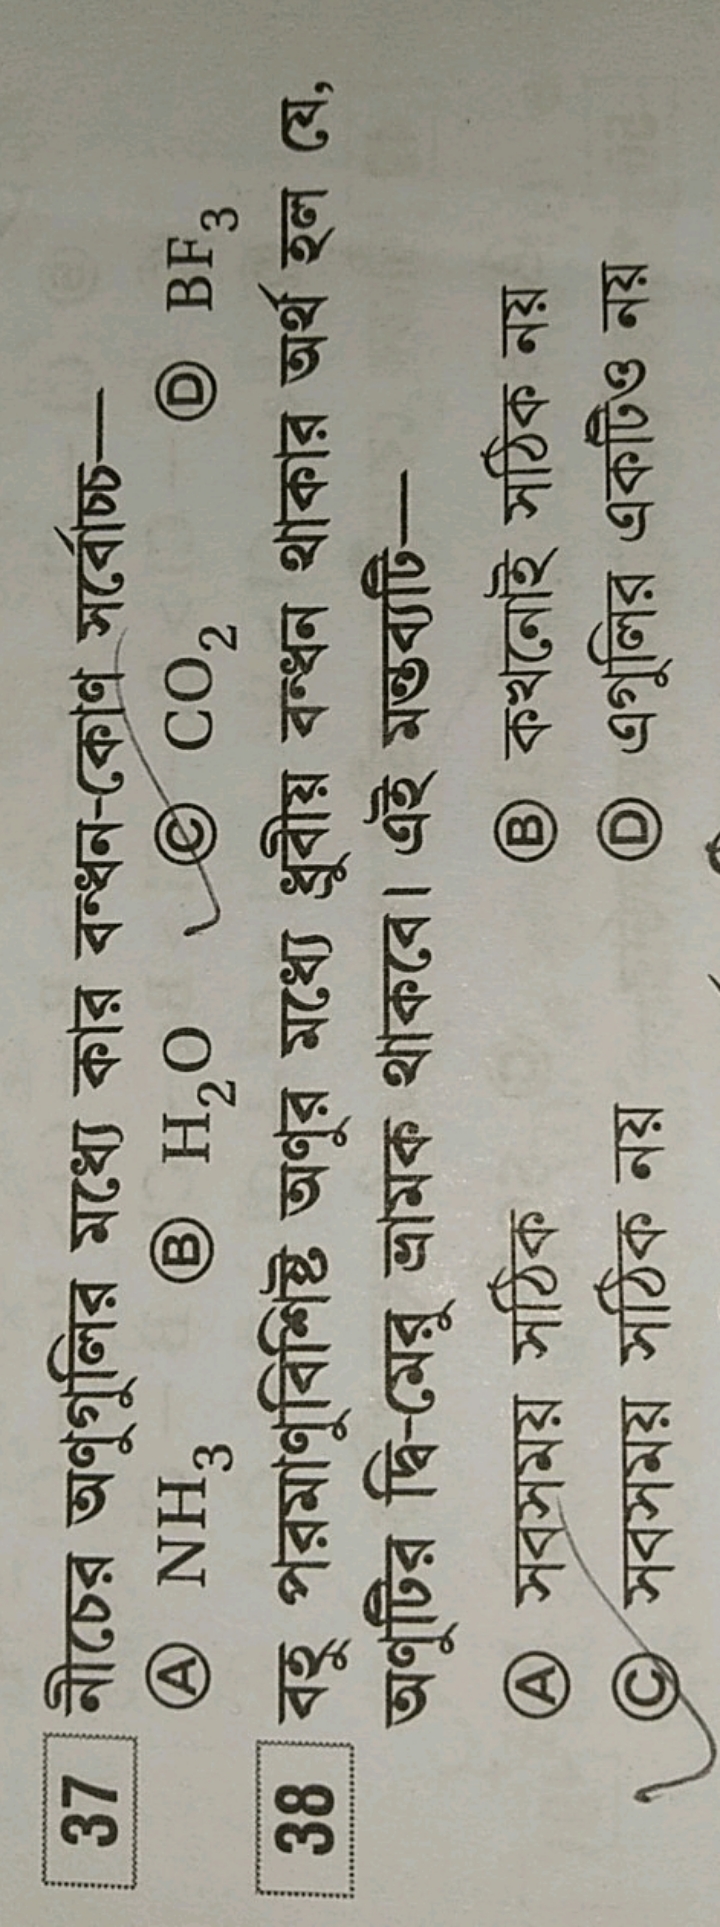 37 নীচের অণুগুলির মধ্যে কার বন্ধন-কোণ সর্বোচ্চ—
Ⓐ NH₃ Ⓑ H₂O Ⓒ CO₂ Ⓓ BF₃
38 বহু পরমাণুবিশিষ্ট অণুর মধ্যে ধ্রুবীয় বন্ধন থাকার অর্থ হল যে,
অণুটির দ্বি-মেরু ভ্রামক থাকবে। এই মন্তব্যটি—
Ⓐ সবসময় সঠিক Ⓑ কখনোই সঠিক নয়
Ⓒ সবসময় সঠিক নয় Ⓓ এগুলির একটিও নয়